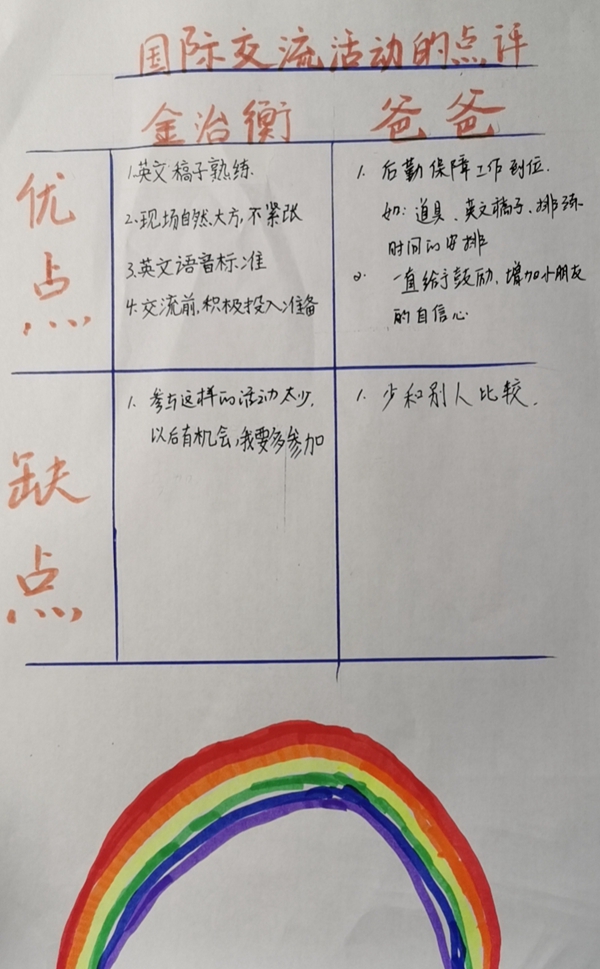 国际交流活动的点评
金治衡
爸爸
优点
1.英文稿子熟练.
2.现场自然大方,不紧张
3.英文语音标准
4.交流前,积极投入准备
1. 后勤保障工作到位.
如:道具、英文稿子、排练
时间的安排
2. 一直给予鼓励,增加小朋友
的自信心
缺点
1. 参与这样的活动太少,
以后有机会,我要多参加
1. 少和别人比较.